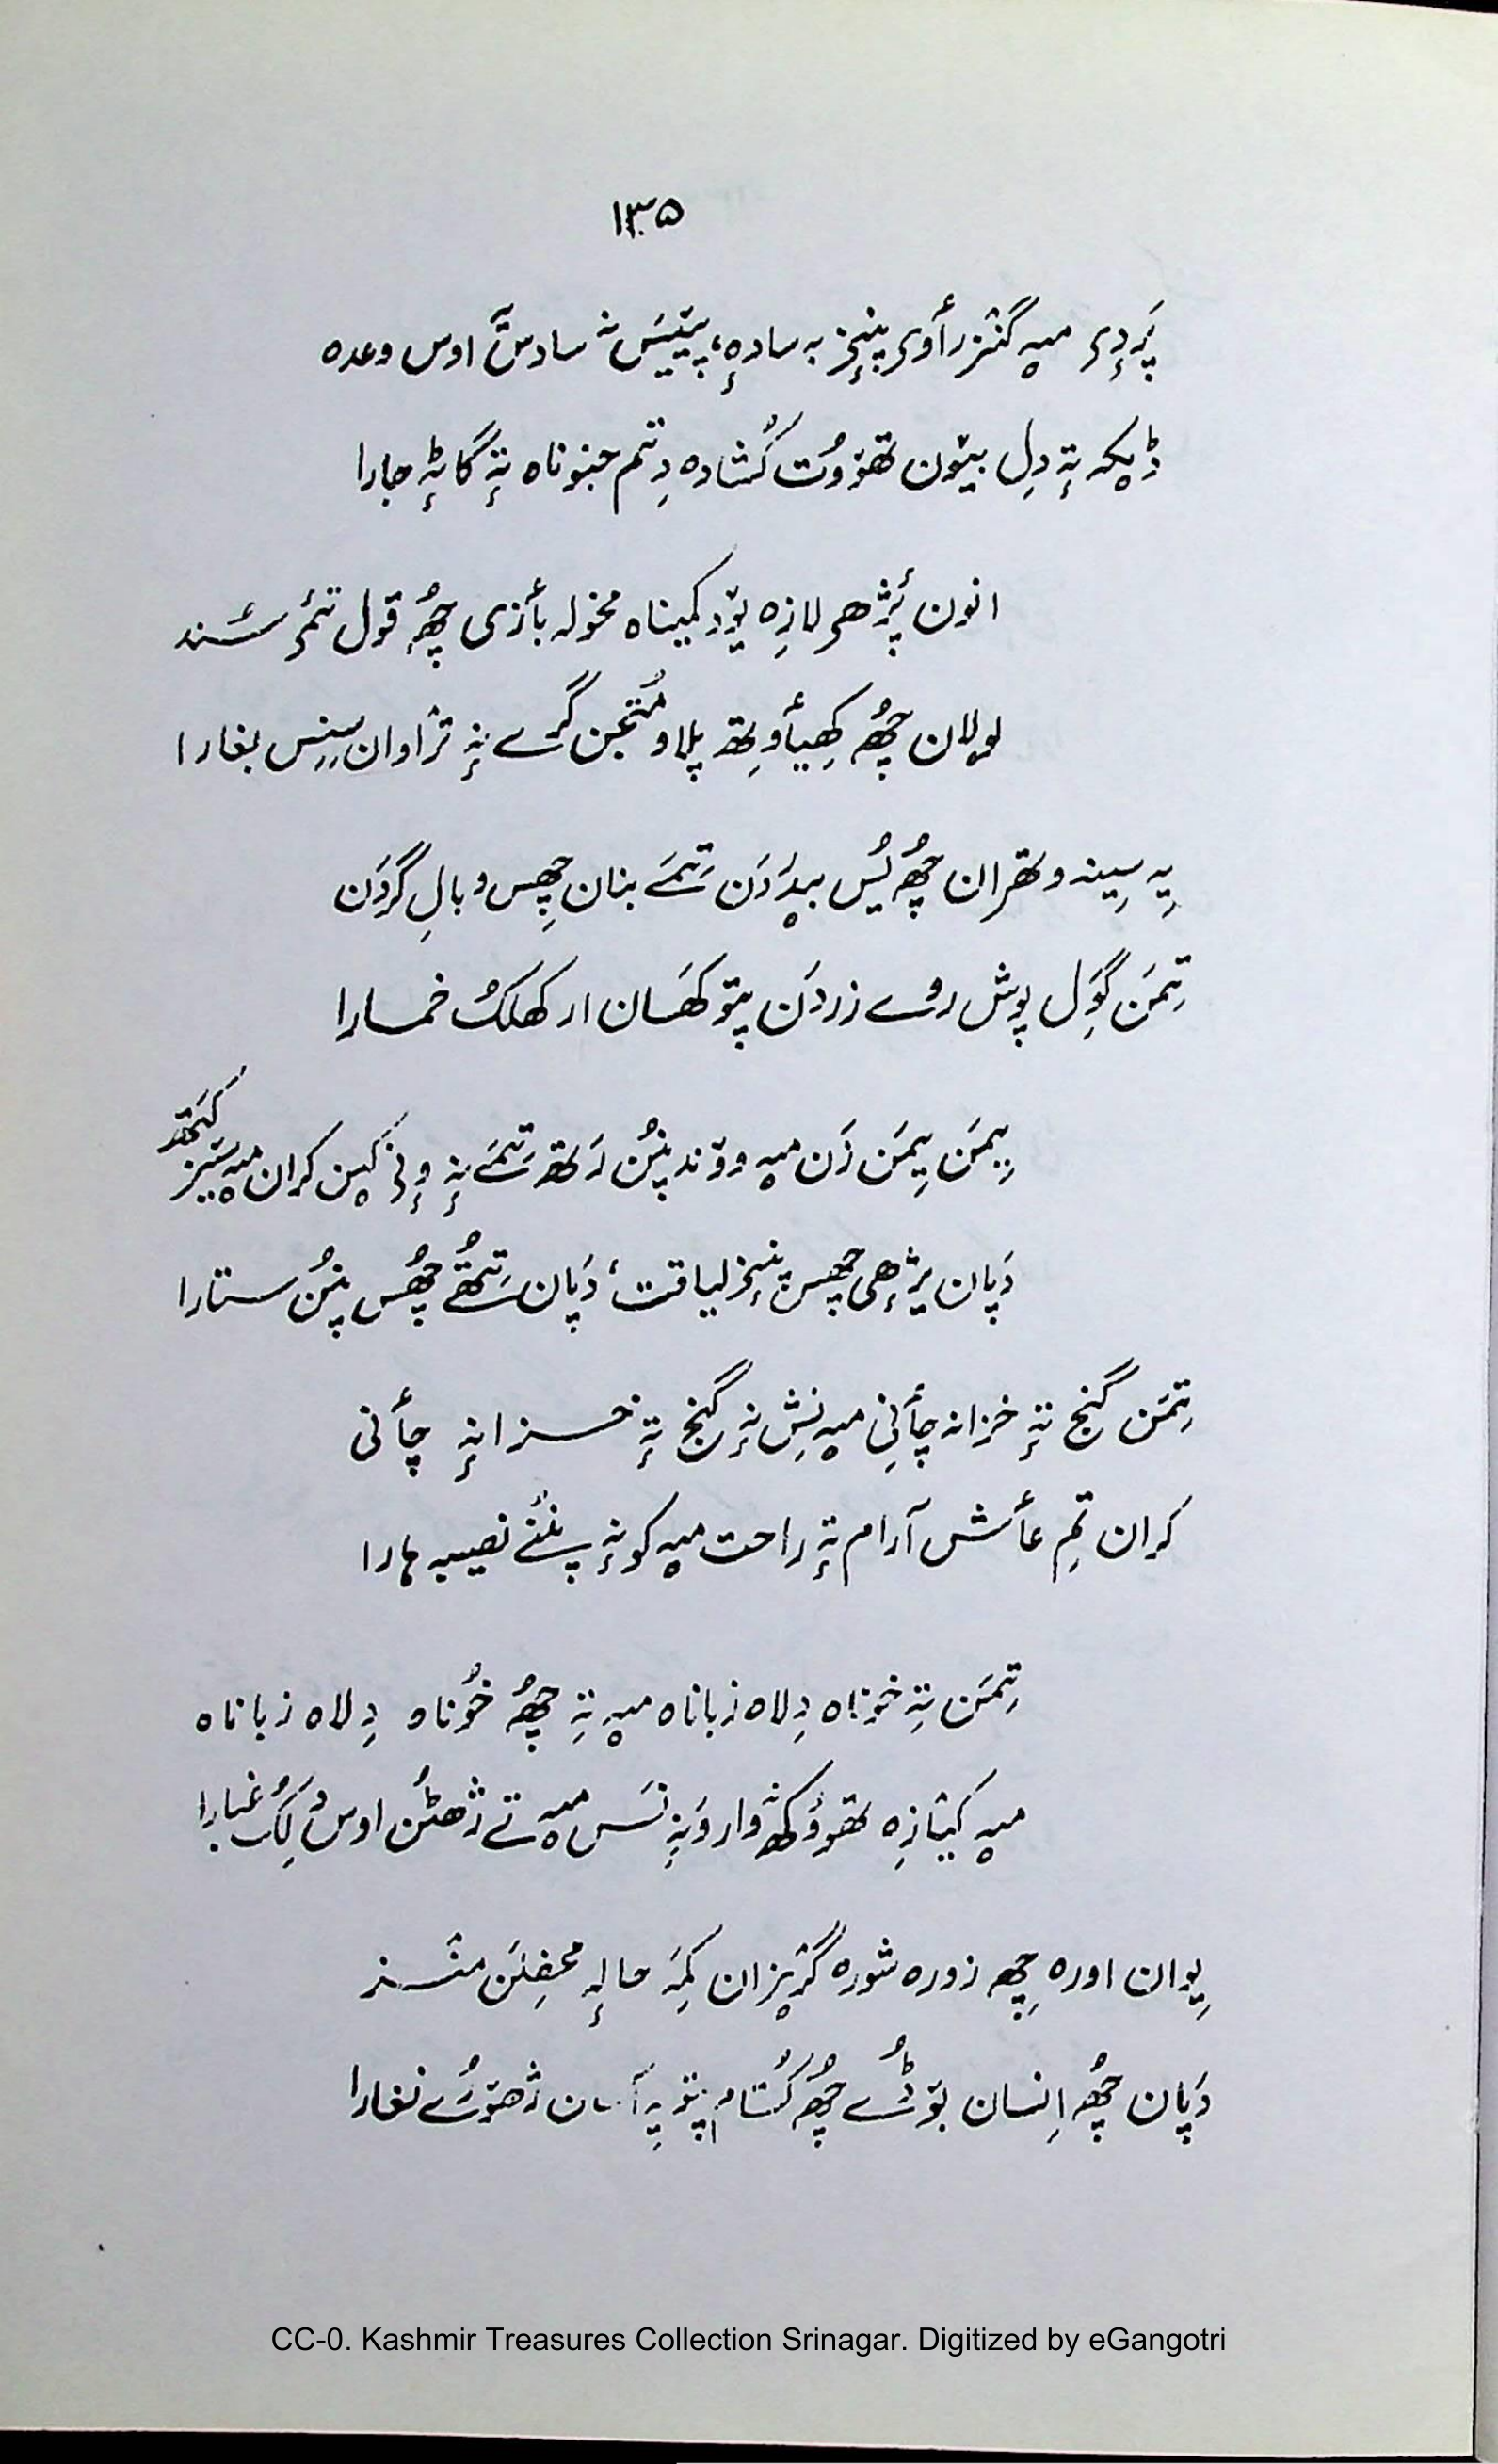 ۱۳۵
پَردِی میہ گنٛزراوی پنٕنز بہ سادہٕ، پیٚیَس نہ سادسٕ اوس وعدہ
ڈیکہ تہٕ دِل بیٚون تھوٚوُت کُشادہ دِتتم جنوناہ تہٕ گاٹہٕ جارا
انون پٔژھی لازِہ یوٚد کمیناہ مخولہ بٲزی چھُ قول تٔمی سٔند
لولان چھُ کھیٲوِتھ پلاو مُتنجن گرٕے نہٕ ترٛاوان سِنِس بغارا
یِہ سِینہ وتھران چھُ یُس بیدردَن تِمَے بنان چھِس وبالِ گردَن
تِمَن گوٚل پوش روے زردَن پتو کھَسان ار کھلکُ خمارا
یِمَن یِمَن زَن میہ ووٚند پنُن رَتھ تِمَے نہٕ وٕنۍ کین کران میہ ستیز کَنہتھ
دَپان یژھی چھس پنٕنز لیاقت، دَپان تِتُھے چھُس پنُن ستارا
تِمَن گنج تہٕ خزانہ چٲنِی میہ نِش نہٕ گنج تہٕ خزانہٕ چٲنی
کران تِم عٲش آرام تہٕ راحت میہ کونہٕ پنٕنے نصیبہ ہارا
تِمَن تہِ خوناہ دِلاہ زباناہ میہ تہِ چھُ خُوناہ دِلاہ زباناہ
میہ کیٛازِہ تھوٚوُکھ وار وَنہٕ نَس میہ تے ژھٹُن اوس دِلُک غبارا
یِوان اورہ چھِ زورہ شورہ گریزان کمِہ حالہٕ محفِلَن منٛز
دَپان چھُ اِنسان بوٚڈے چھُ کُتام پتو یہِ آسان ژھوٚرُے نغارا
CC-0. Kashmir Treasures Collection Srinagar. Digitized by eGangotri